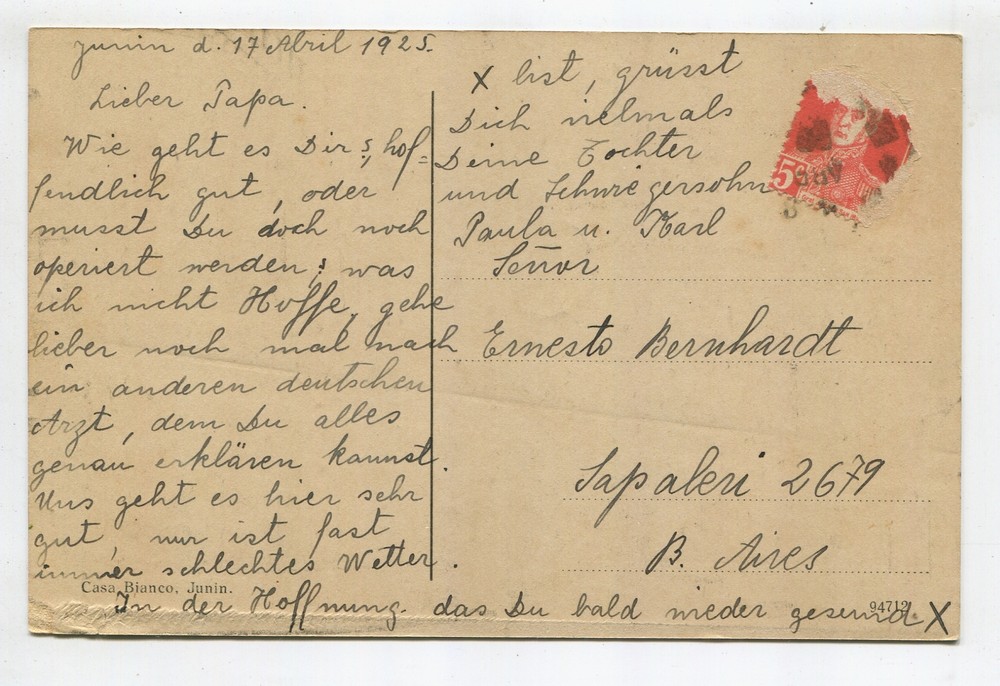 Junin d. 17 Abril 1925.
Lieber Papa.
Wie geht es Dir, hof=
fendlich gut, oder
musst Du doch noch
operiert werden, was
ich nicht Hoffe, gehe
lieber noch mal nach
ein anderen deutschen
Arzt, dem Du alles
genau erklären kannst.
Uns geht es hier sehr
gut, nur ist fast
immer schlechtes Wetter.
In der Hoffnung das Du bald wieder gesund X
X bist, grüsst
Dich vielmals
Deine Tochter
und Schwiegersohn
Paula u. Karl
Señor
Ernesto Bernhardt
Sapaleri 2679
B. Aires
Casa Bianco, Junin.
94712
5c